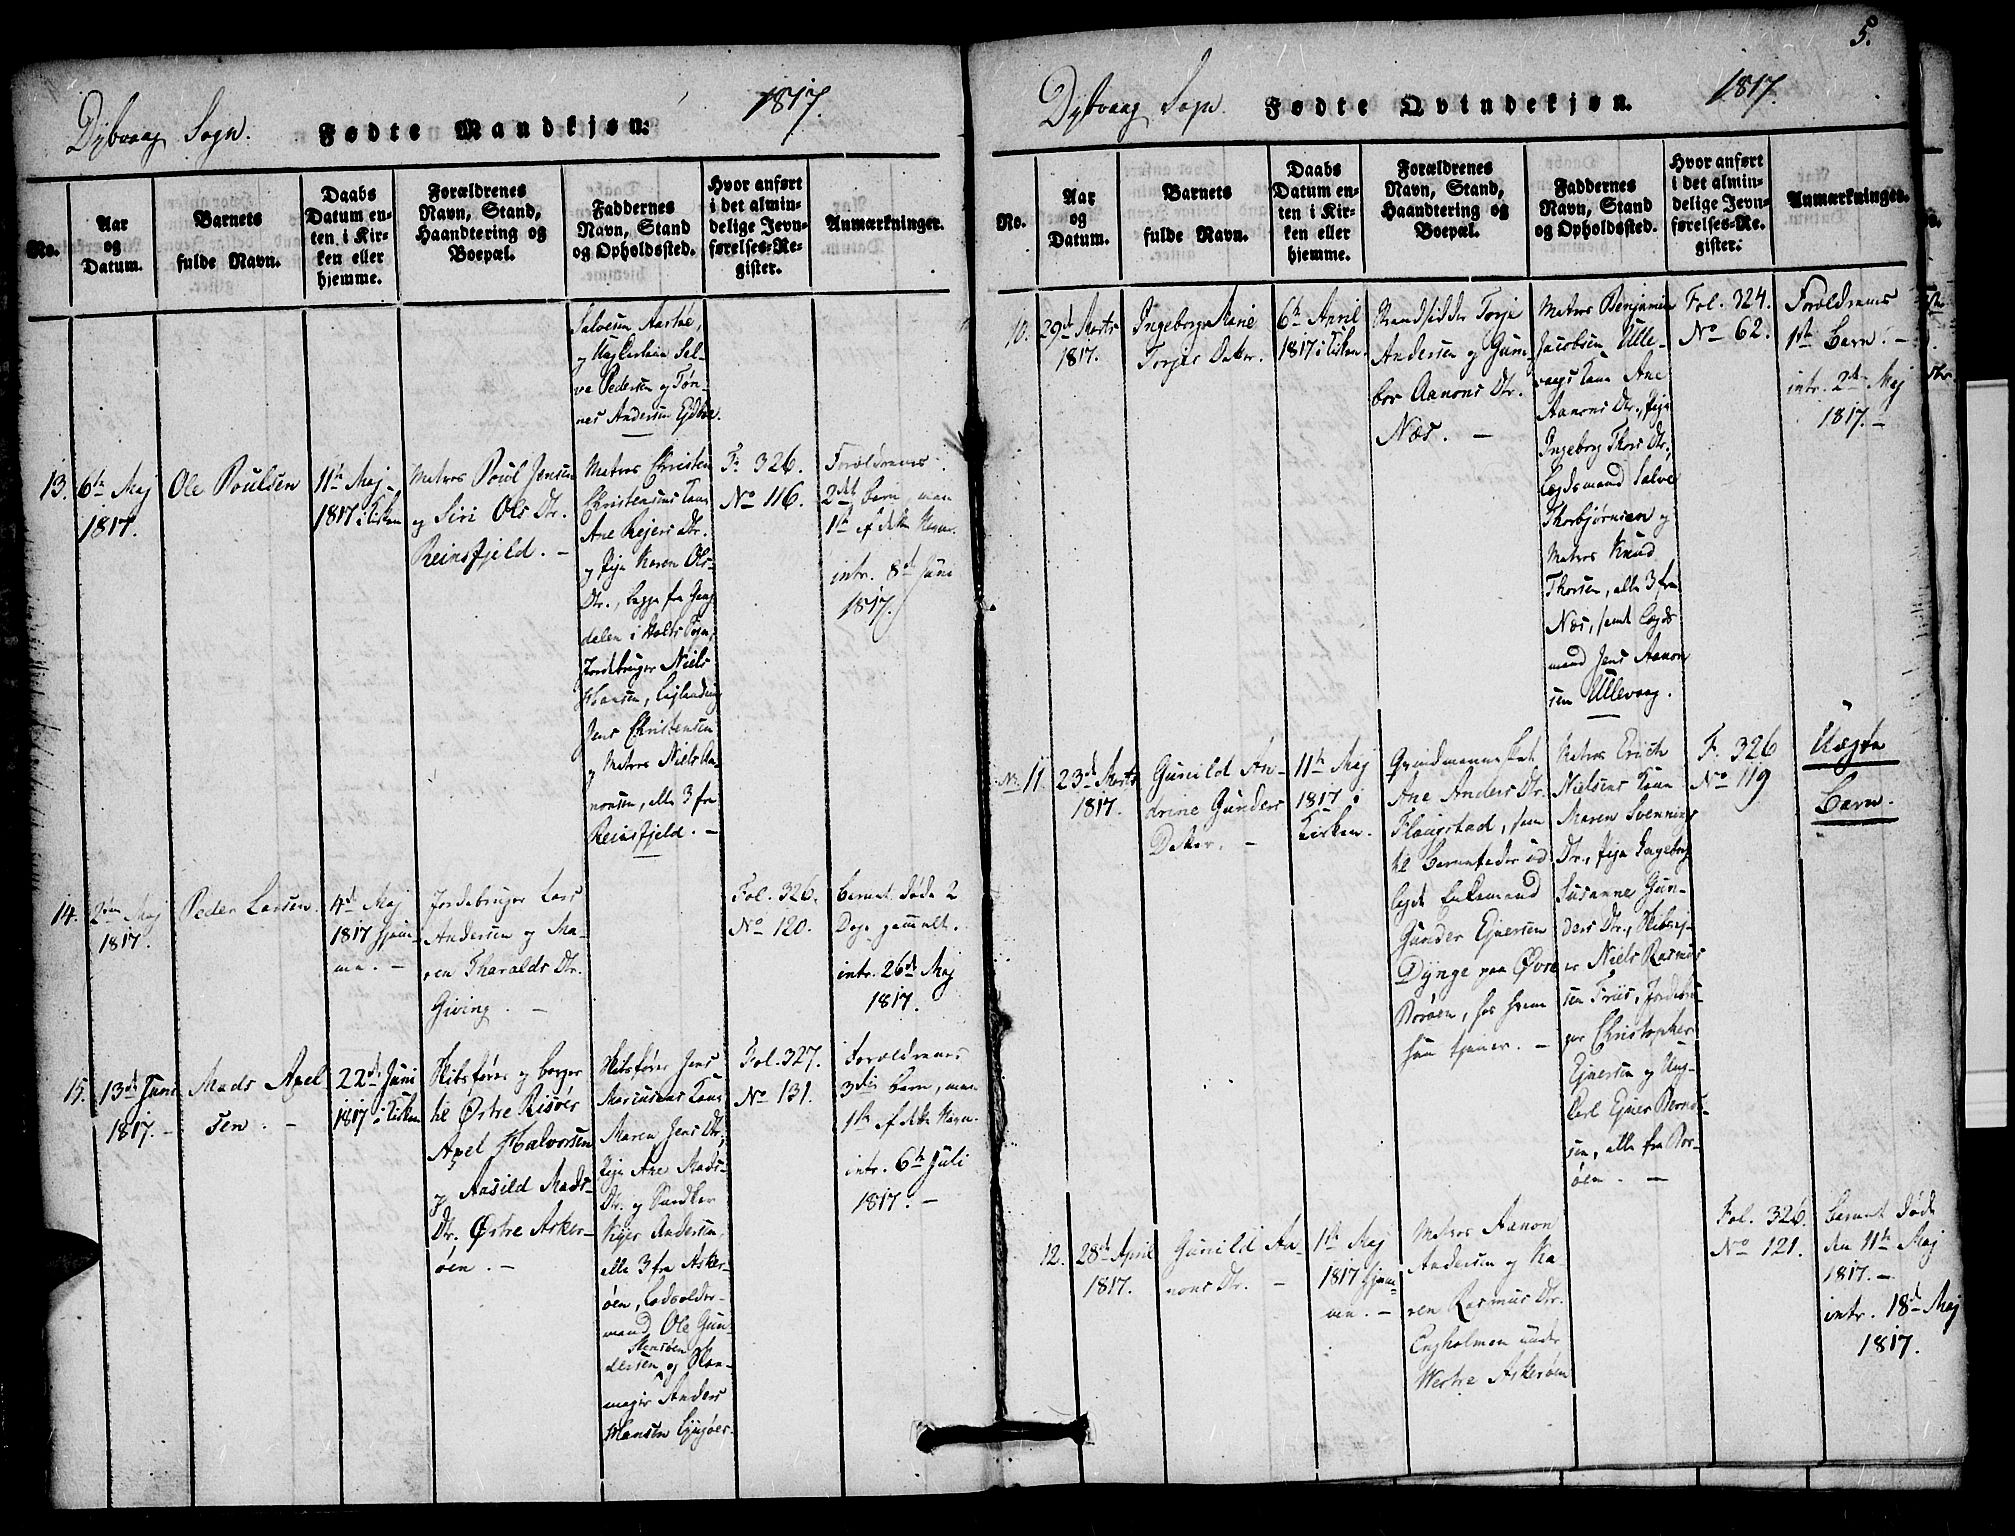 Dybvaag Sogn.
Fødte Mandkjøn.
1817.
No.
Aar
og
Datum.
Barnets
fulde Navn.
Daabs
Datum en-
ten i Kir-
ken eller
hjemme.
Forældrenes
Navn, Stand,
Haandtering og
Boepæl.
Faddernes
Navn, Stand
og Opholdssted.
Hvor anført
i det almin-
delige Jevn-
førelses-Re-
gister.
Anmærkninger.
Salvesen Aaskøe,
Sal-
ve Pedersen og Tøn-
nes Andersen Eydho.
13.
6te Maj
1817.
Ole Poulsen
11te Maj
1817 i Kirken
Matros Poul Jensen
og Siri Ols Dtr.
Reinsfjeld. –
Matros Christen
Christensens Kone
Ane Rejers Dtr.
og Pige Karen Ols
Dtr., begge fra
dalen i Holts Sogn,
Jordebruger Niels
Hansen,
Jens Christensen
og Matros Niels Aa-
nonsen, alle 3 fra
Reinsfjeld. –
F. 326.
No 116.
Forældrenes
2det Barn, men
1ste af dette Navn.
intr. 8de Juni
1817.
14.
2den Maj
1817.
Peder Larsen.
4de Maj
1817 hjem-
me. –
Jordebruger Lars
Andersen og Ma-
ren Tharalds Dtr.
Giving. –
Fol. 326.
No 120.
Barnet døde 2
Dage gammelt.
intr. 26de Maj
1817.
15.
13de Juni
1817. –
Mads Axel
sen. –
22de Juni
1817 i Kirken
Skibsfører og borger
til Østre Risøer
Axel Halvorsen
og Aasild Mads
Dtr. Østre Asker-
øen. –
Skibsfører Jens
Marcusens Kone
Maren Jens Dtr.,
Pige Ane Mads
Dtr. og
Andersen,
alle 3 fra Asker-
øen,
mand Ole Gun-
Stensøen
dersen og Skoe-
mager Anders
Hansen Lyngøer.
Fol. 327.
No 131.
Forældrenes
3die Barn, men
1ste af dette Navn.
intr. 6te Juli
1817. –
5.
Dybvaag Sogn.
Fødte Qvindekjøn.
1817.
No.
Aar
og
Datum.
Barnets
fulde Navn.
Daabs
Datum en-
ten i Kir-
ken eller
hjemme.
Forældrenes
Navn, Stand,
Haandtering og
Boepæl.
Faddernes
Navn, Stand
og Opholdssted.
Hvor anført
i det almin-
delige Jevn-
førelses-Re-
gister.
Anmærkninger.
10.
29de Marts
1817.
Ingeborg Marie
Torjes Dater.
6te April
1817 i Kirken.
Strandsidder Torje
Andersen og Gun-
bor Aanons Dtr.
Næs. –
Matros Benjamin
Jacobsen Ulle-
vaags Kone Ane
Aanons Dtr., Pige
Ingeborg Thors Dtr.,
Lejdsmand Salve
Thorbjørnsen og
Matros Knud
Thorsen, alle 3 fra
Næs, samt Lejds-
mand Jens Aanon
sen Ullevaag.
Fol. 324.
No 62.
Forældrenes
1ste Barn. –
intr. 2den Maj
1817. –
No. 11.
23de Marts
1817.
Gunild An-
drine Gunders
Dater. –
11te Maj
1817 i
Kirken.
Qvindmennesket
Ane Anders Dtr.
Flougstad, som
til Barnefader ud
lagde Enkemand
Gunder Ejnersen
Dynge paa Øvre
Borøen, hos hvem
hun tjener. –
Matros Erich
Nielsens Kone
Maren Svennings
Dtr., Pige Ingeborg
Susanne Gun-
ders Dtr., Skibsej-
er Niels Rasmus
sen Friis, Jordebru-
ger Christopher
Ejnersen og Ung-
karl Ejner Bernt-
sen, alle fra Bor-
øen. –
F. 326
No 119
Uægte
Barn.
12.
28de April
1817.
Gunild Aa-
nons Dtr. –
1ste Maj
1817 hjem-
me. –
Matros Aanon
Andersen og Ka-
ren Rasmus Dtr.
Engholmen under
Westre Askerøen
Fol. 326.
No 121.
Barnet døde
den 11te Maj
1817. –
intr. 18de Maj
1817.